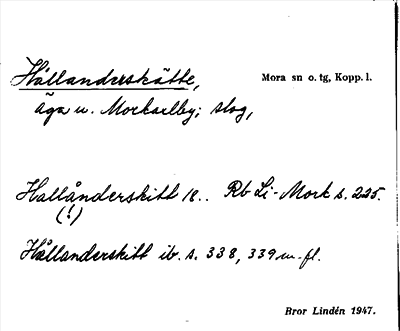 Hållanderskätte,
Mora sn o. tg, Kopp. l.
äga u. Morkarlby; slog,
Hallånderskitt 18.. Rb Li-Mork s. 225.
(!)
Hållanderskitt ib. s. 338, 339 m. fl.
Bror Lindén 1947.